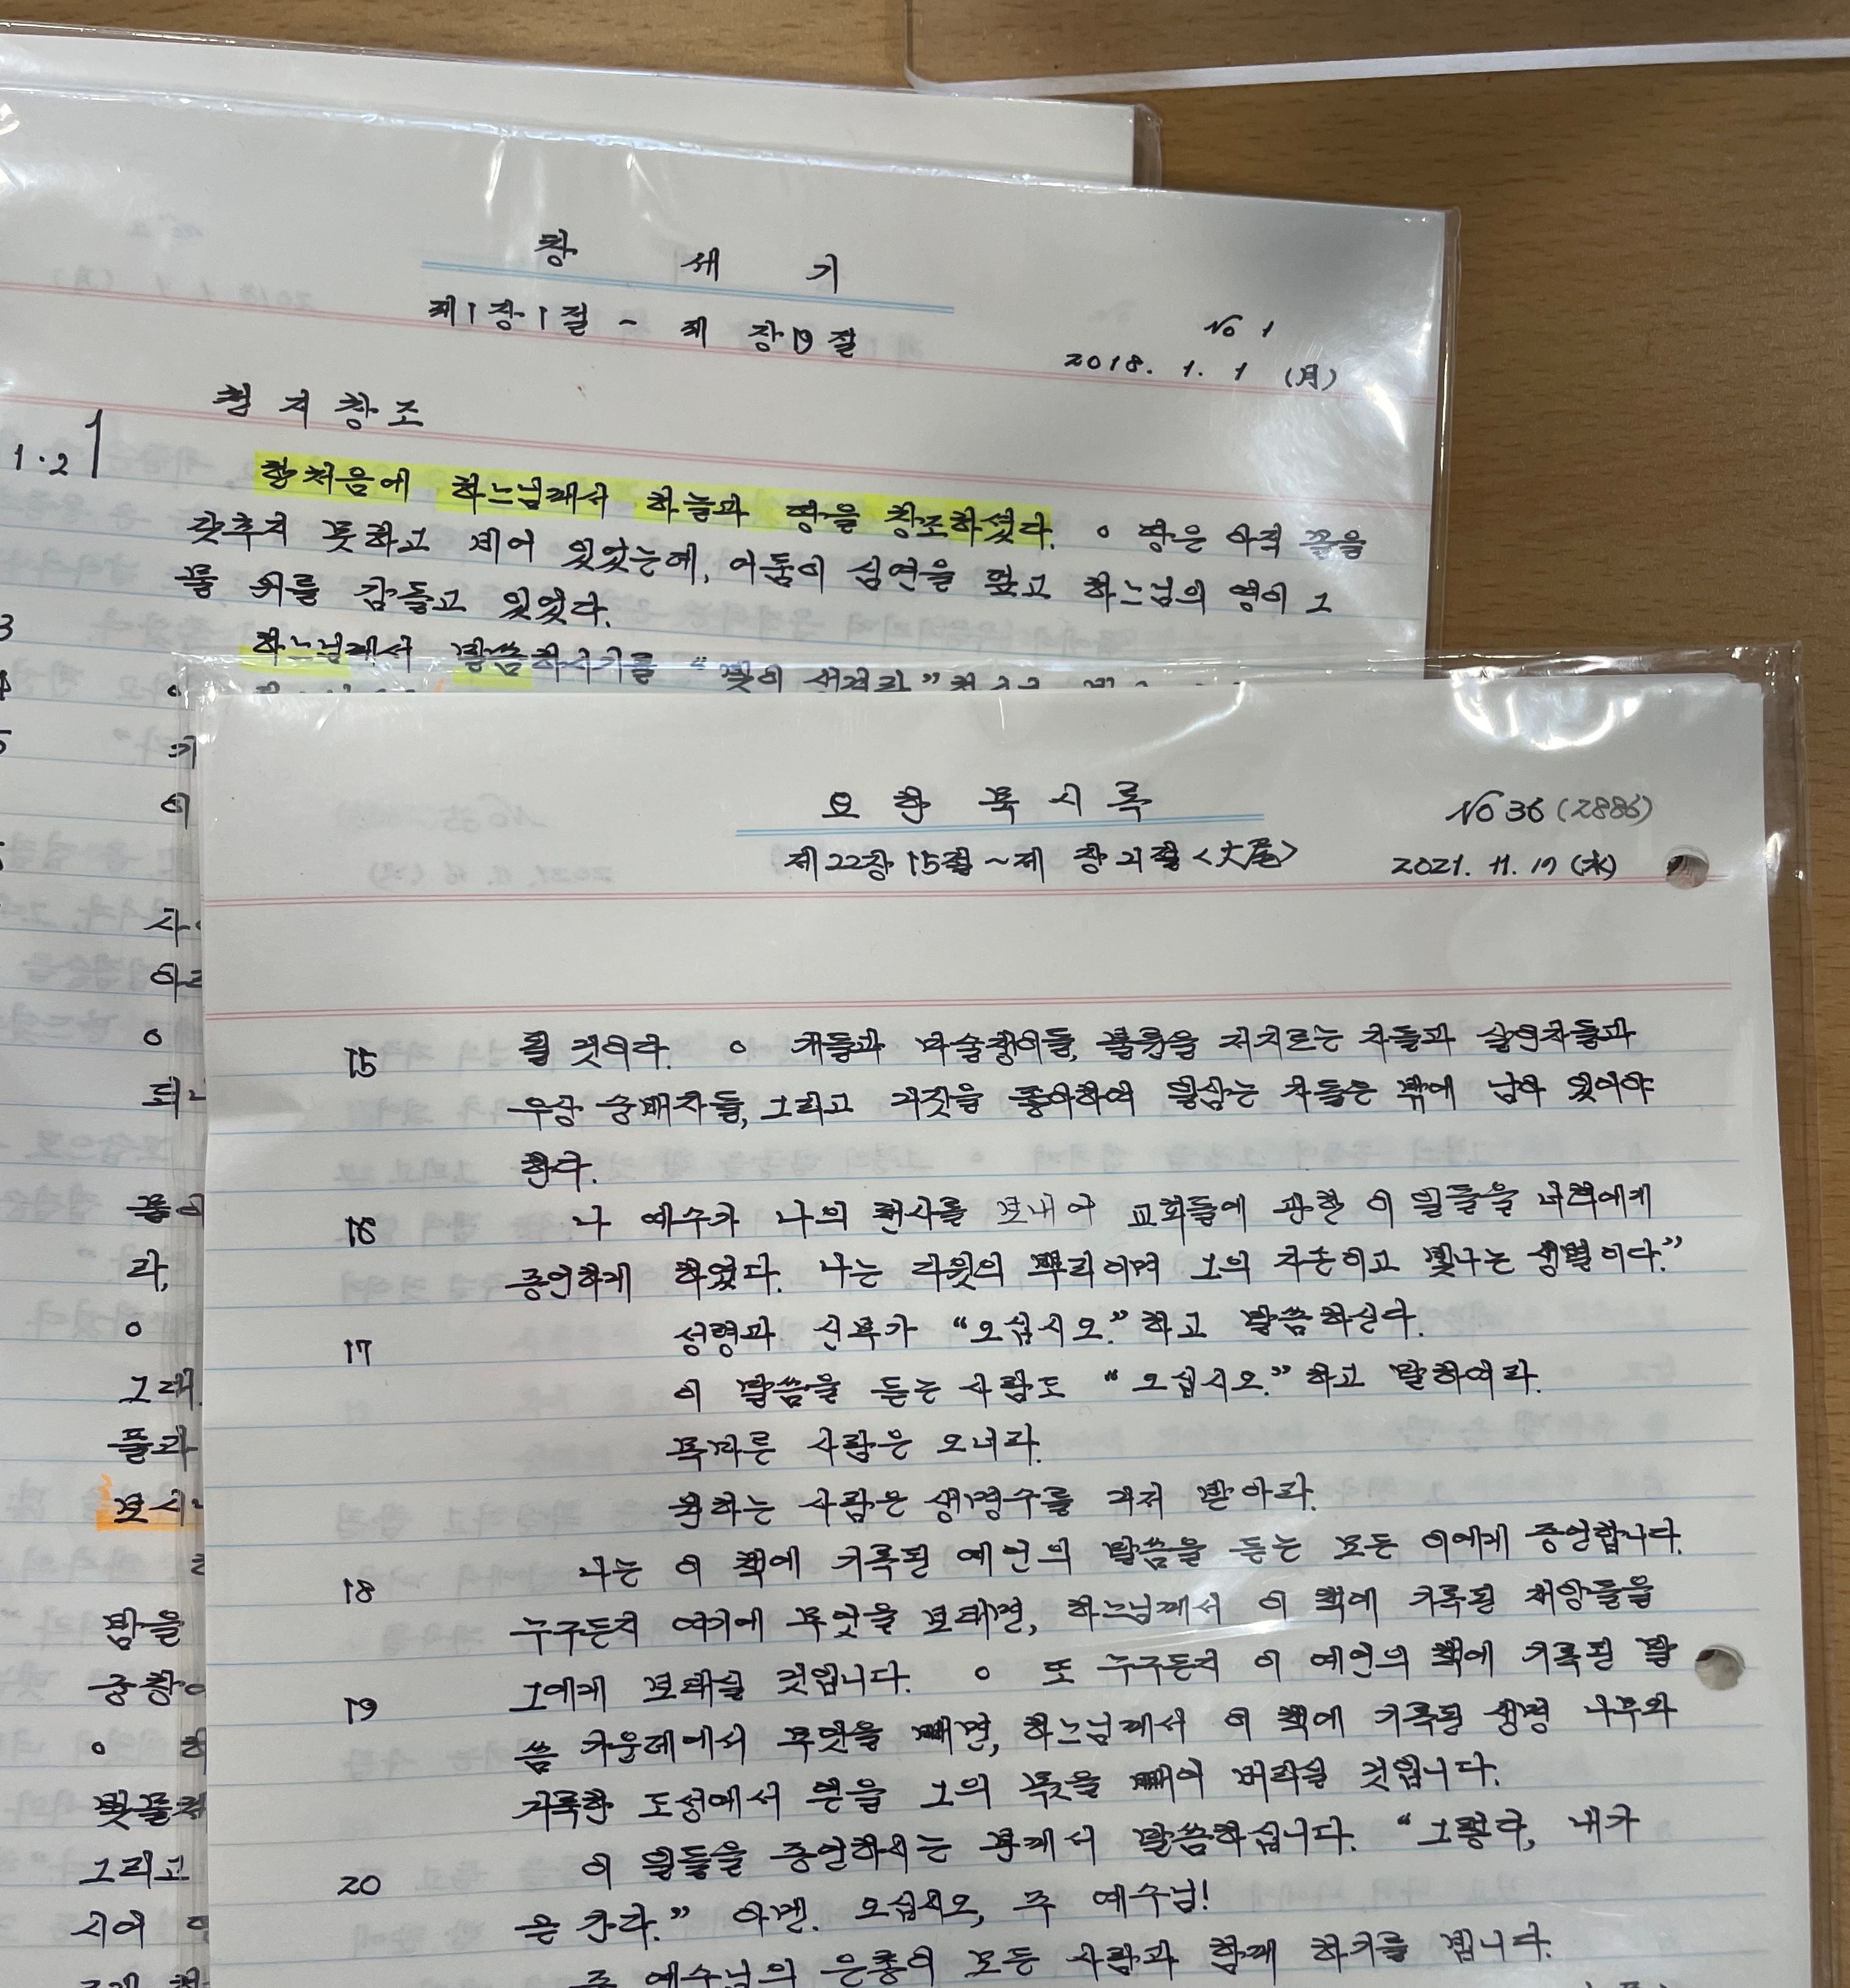 창 세 기
제1장1절 - 제 장19절
No 1
2018. 1. 1 (月)
천지창조
1·2
한처음에 하느님께서 하늘과 땅을 창조하셨다. ○ 땅은 아직 꼴을
갖추지 못하고 비어 있었는데, 어둠이 심연을 덮고 하느님의 영이 그
물 위를 감돌고 있었다.
3
하느님께서 말씀하시기를 “빛이 생겨라”
4
○
5
이
○
라,
○
그래
보시
밤을
궁창
○
그리고
시어
요 한 묵 시 록
No 36 (2886)
제22장15절~제 장21절<大尾>
2021. 11. 17 (水)
15 될 것이다. ○ 개들과 마술쟁이들, 불륜을 저지르는 자들과 살인자들과
우상 숭배자들, 그리고 거짓을 좋아하여 일삼는 자들은 밖에 남아 있어야
한다.
16 나 예수가 나의 천사를 보내어 교회들에 관한 이 일들을 너희에게
증언하게 하였다. 나는 다윗의 뿌리이며 그의 자손이고 빛나는 샛별이다.”
17 성령과 신부가 “오십시오.”하고 말씀하신다.
이 말씀을 듣는 사람도 “오십시오.”하고 말하여라.
목마른 사람은 오너라.
원하는 사람은 생명수를 거저 받아라.
18 나는 이 책에 기록된 예언의 말씀을 듣는 모든 이에게 증언합니다.
누구든지 여기에 무엇을 보태면, 하느님께서 이 책에 기록된 재앙들을
그에게 보태실 것입니다. ○ 또 누구든지 이 예언의 책에 기록된 말
19
씀 가운데에서 무엇을 빼면, 하느님께서 이 책에 기록된 생명 나무와
거룩한 도성에서 얻을 그의 몫을 빼어 버리실 것입니다.
20 이 일들을 증언하시는 분께서 말씀하십니다. “그렇다, 내가
곧 간다.” 아멘. 오십시오, 주 예수님!
주 예수님의 은총이 모든 사람과 함께 하기를 빕니다.